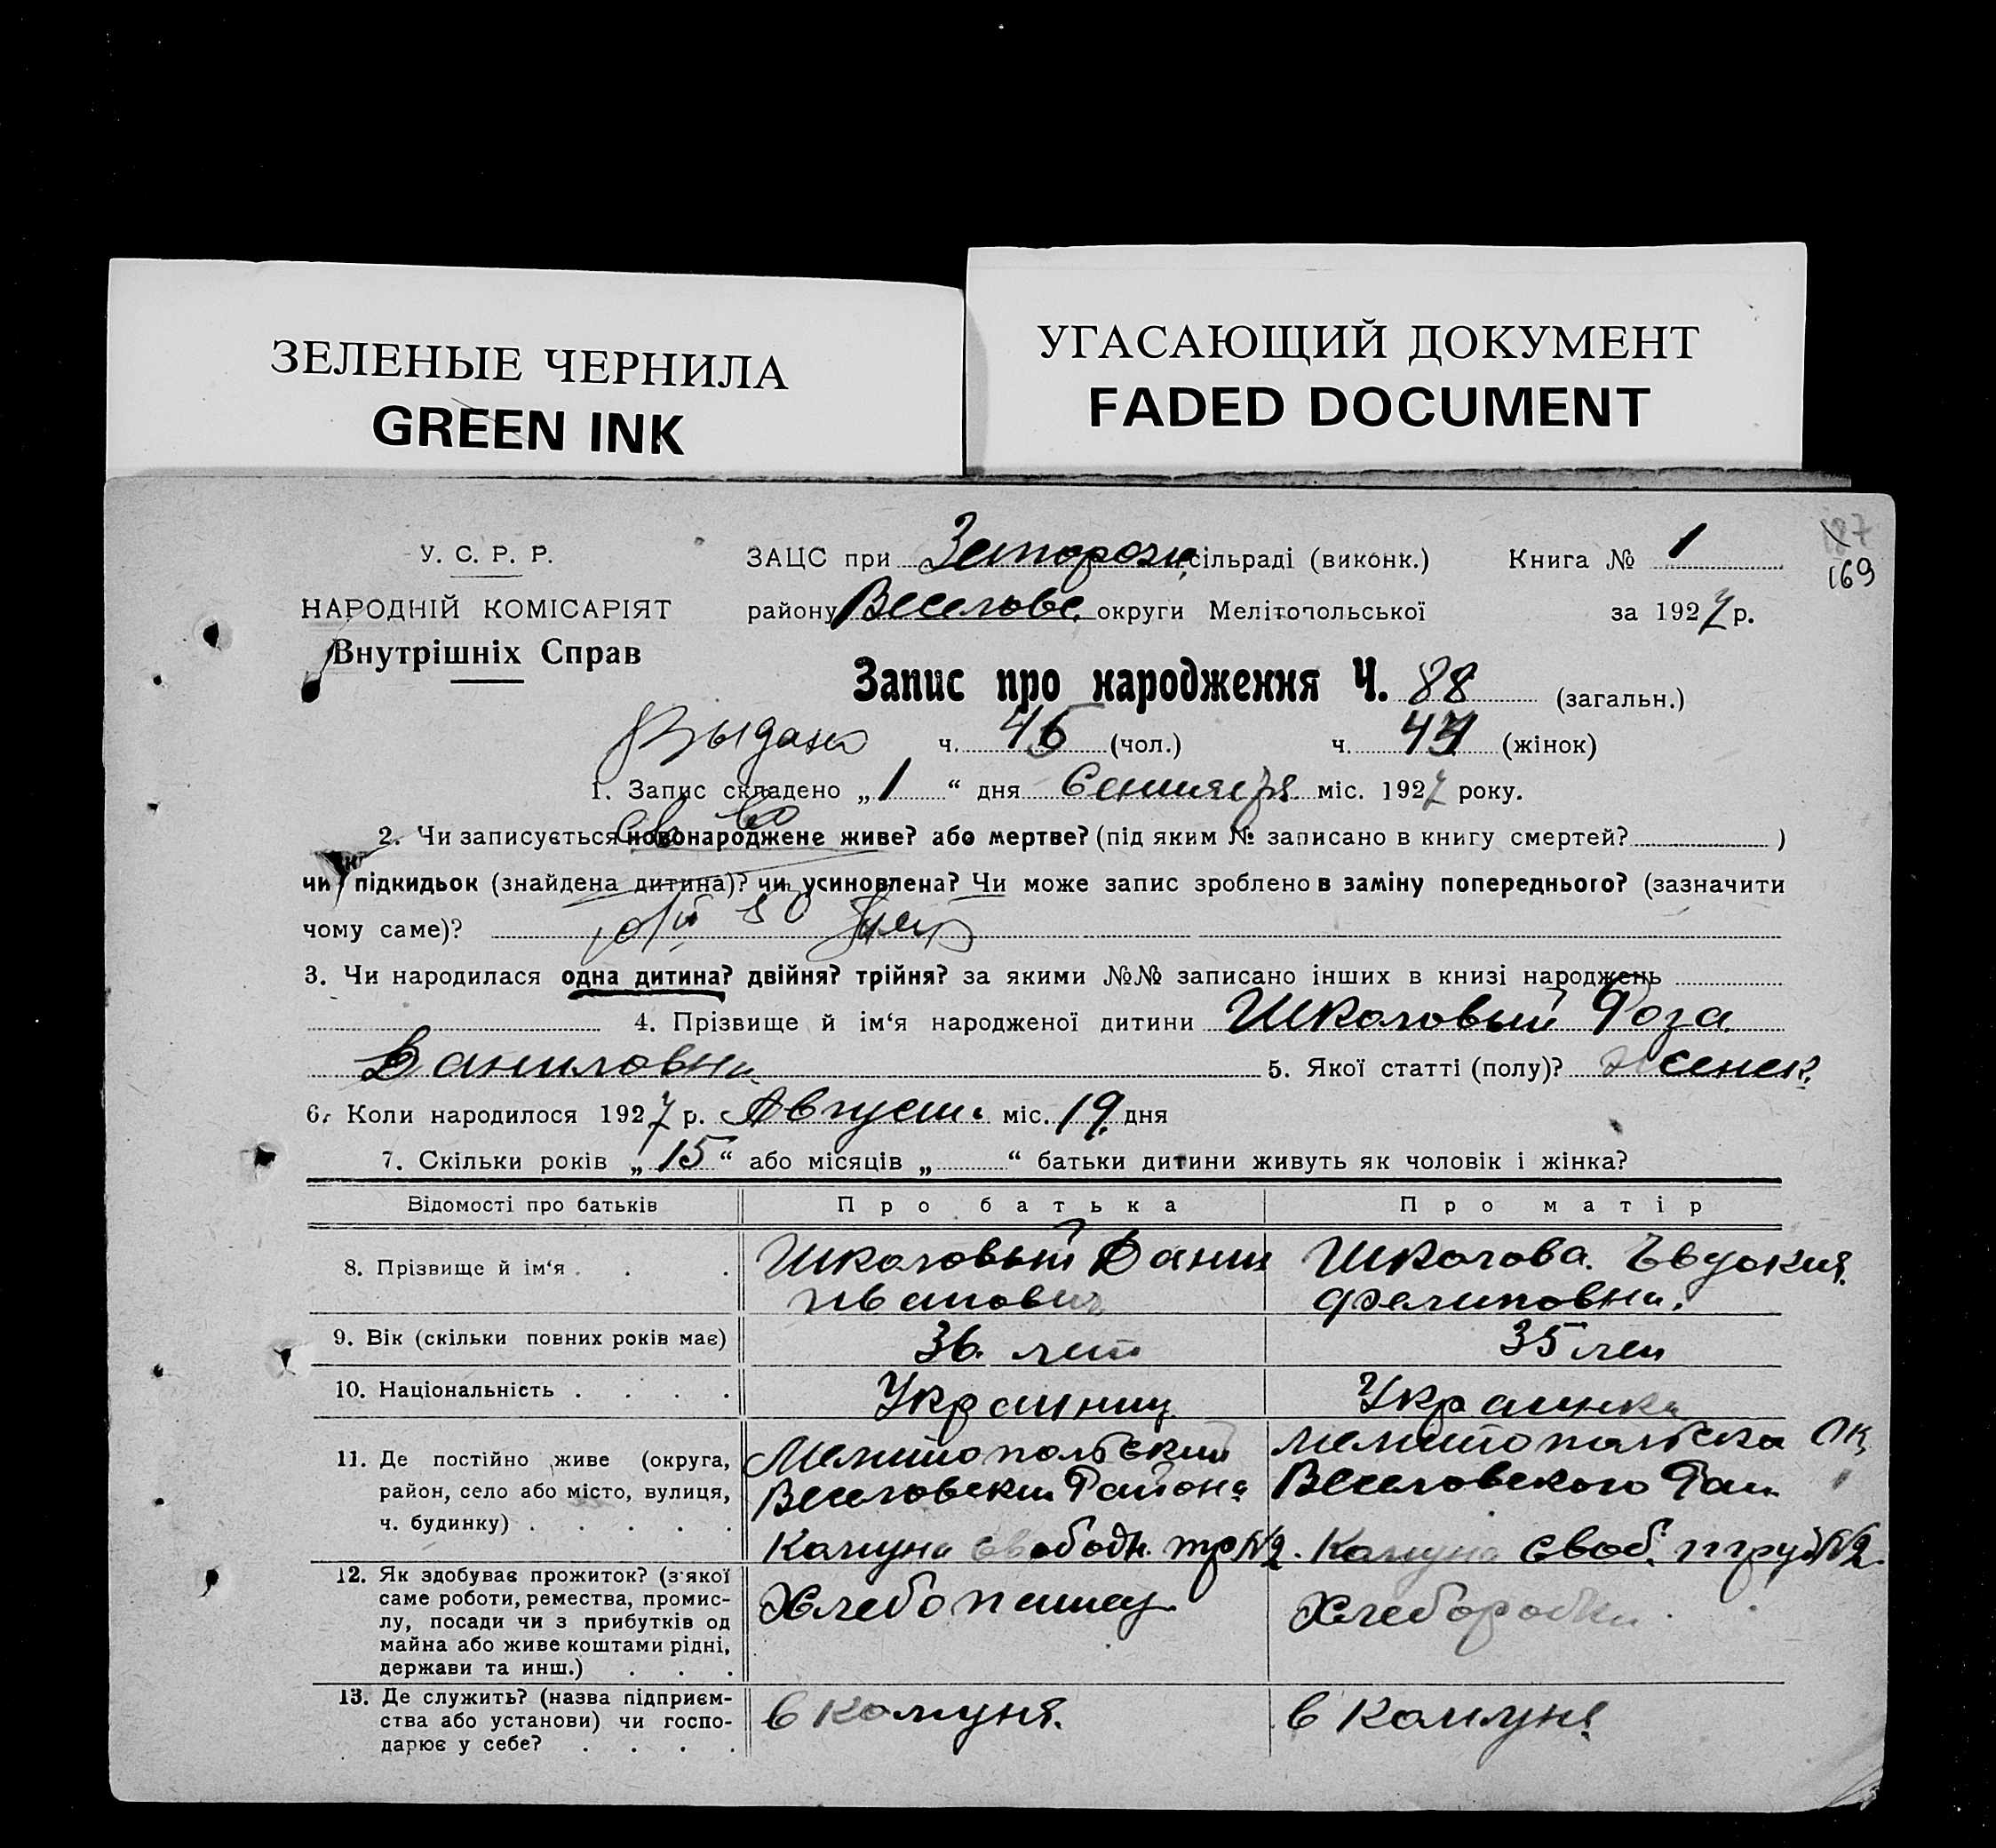 ЗЕЛЕНЫЕ ЧЕРНИЛА
GREEN INK
УГАСАЮЩИЙ ДОКУМЕНТ
FADED DOCUMENT
187
169
У. С. Р. Р.
НАРОДНІЙ КОМІСАРІЯТ
Внутрішніх Справ
ЗАЦС при сільраді (виконк.) Книга № 1
району Веселовс. округи Мелітопольської за 1927 р.
Запис про народження Ч. 88 (загальн.)
Выдано ч. (чол.) ч. 44 (жінок)
1. Запис складено „1“ дня Сентября міс. 1927 року.
св во
2. Чи записується новонароджене живе? або мертве? (під яким № записано в книгу смертей? )
чи підкидьок (знайдена дитина)? чи усиновлена? Чи може запис зроблено в заміну попереднього? (зазначити
чому саме)?
3. Чи народилася одна дитина? двійня? трійня? за якими №№ записано інших в книзі народжень
4. Прізвище й ім‘я народженої дитини Школовый Роза
Даниловна 5. Якої статті (полу)? женск.
6. Коли народилося 1927 р. Август. міс. 19. дня
7. Скільки років „15“ або місяців „ “ батьки дитини живуть як чоловік і жінка?
Відомості про батьків Про батька Про матір
8. Прізвище й ім‘я Школовый Данил Школова. Евдокия.
Иванович Филиповна.
9. Вік (скільки повних років має) 36 лет 35 лет
10. Національність Украинец Украинка
11. Де постійно живе (округа, Мелитопольский Мелитопольска Ок
район, село або місто, вулиця, Веселовский Района Веселовского Рай.
ч. будинку) Комуна свободн. тр №2. Комуна Своб. труд №2.
12. Як здобуває прожиток? (з‘якої Хлебопашец Хлеборобка.
саме роботи, ремества, промис-
лу, посади чи з прибутків од
майна або живе коштами рідні,
держави та инш.)
13. Де служить? (назва підприєм- в комуня. в комуня
ства або установи) чи госпо-
дарює у себе?